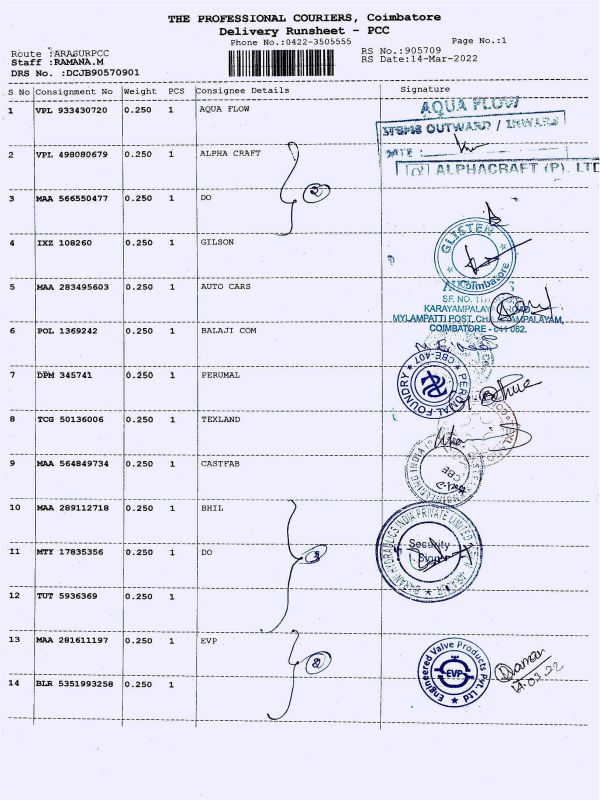 THE PROFESSIONAL COURIERS, Coimbatore
Delivery Runsheet - PCC
Phone No.:0422-3505555 Page No.:1
Route :ARASURPCC RS No.:905709
Staff :RAMANA.M RS Date:14-Mar-2022
DRS No. :DCJB90570901
S No Consignment No Weight PCS Consignee Details Signature
1 VPL 933430720 0.250 1 AQUA FLOW
AQUA FLOW
ITEMS OUTWARD / INWARD
DATE :
2 VPL 498080679 0.250 1 ALPHA CRAFT
ALPHACRAFT (P). LTD
3 MAA 566550477 0.250 1 DO
2
4 IXZ 108260 0.250 1 GILSON
GLISTEN
Coimbatore
5 MAA 283495603 0.250 1 AUTO CARS
SF. NO.
KARAYAMPALAYAM
MYLAMPATTI POST,
COIMBATORE - 641 062.
6 POL 1369242 0.250 1 BALAJI COM
7 DPM 345741 0.250 1 PERUMAL
PERUMAL FOUNDRY CBE-407
8 TCG 50136006 0.250 1 TEXLAND
9 MAA 564849734 0.250 1 CASTFAB
CBE
10 MAA 289112718 0.250 1 BHIL
HYDRAULICS INDIA PRIVATE LIMITED
Security
11 MTY 17835356 0.250 1 DO
3
12 TUT 5936369 0.250 1
13 MAA 281611197 0.250 1 EVP
2
Engineered Valve Products Pvt Ltd
EVP
14 BLR 5351993258 0.250 1